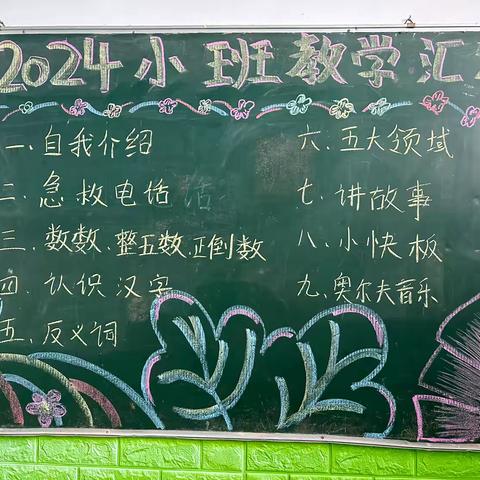 2024小班教学汇
一、自我介绍
二、急救电话
三、数数、整五数、正倒数
四、认识汉字
五、反义词
六、五大领域
七、讲故事
八、小快板
九、奥尔夫音乐